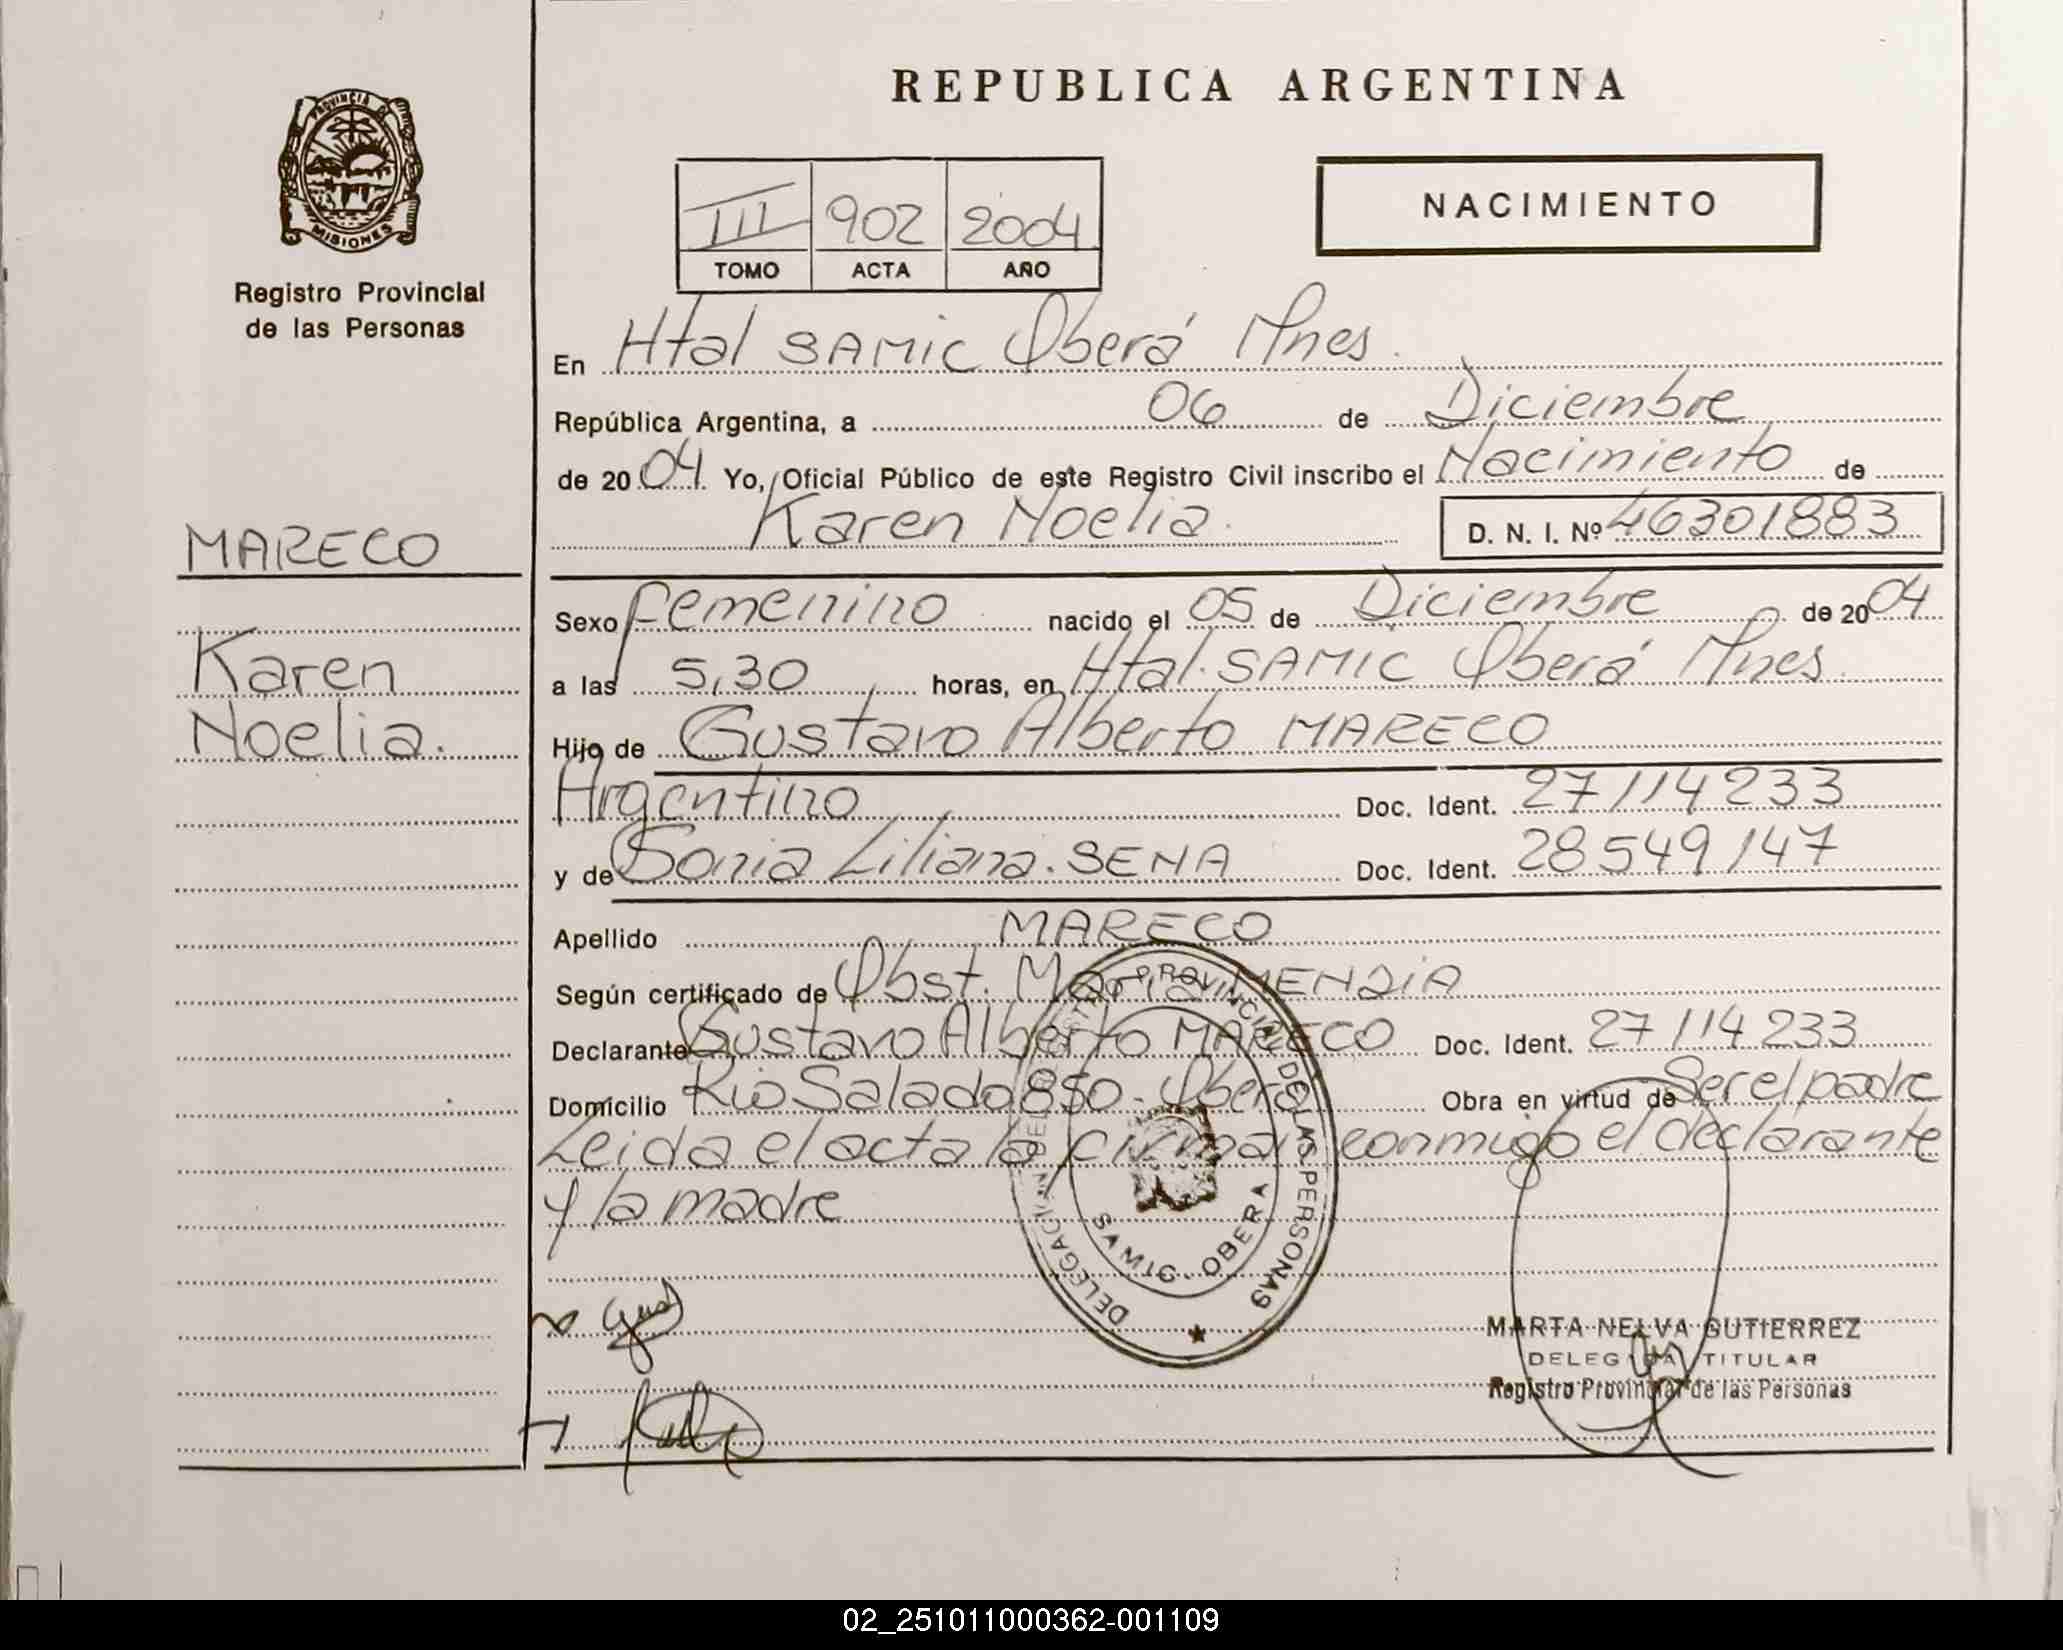 REPUBLICA ARGENTINA
PROVINCIA DE
MISIONES
Registro Provincial
de las Personas
NACIMIENTO
III 902 2004
TOMO ACTA AÑO
En Htal SAMIC Oberá Mnes.
República Argentina, a 06 de Diciembre
de 2004. Yo, Oficial Público de este Registro Civil inscribo el Nacimiento de
Karen Noelia. D. N. I. Nº 46301883
MARECO
Karen
Noelia.
Sexo femenino nacido el 05 de Diciembre de 2004
a las 5,30 horas, en Htal. SAMIC Oberá Mnes
Hijo de Gustavo Alberto MARECO
Argentino Doc. Ident. 27114233
y de Sonia Liliana. SENA Doc. Ident. 28549147
Apellido MARECO
Según certificado de Obst. Maria MENDIA
Declarante Gustavo Alberto MARECO Doc. Ident. 27114233
Domicilio Rio Salado 850. Oberá Obra en virtud de Ser el padre
Leida el acta la firman conmigo el declarante
y la madre
DELEGACION DEL REGISTRO PROVINCIAL DE LAS PERSONAS
SAMIC - OBERA
MARTA NELVA GUTIERREZ
DELEGADA TITULAR
Registro Provincial de las Personas
02_251011000362-001109